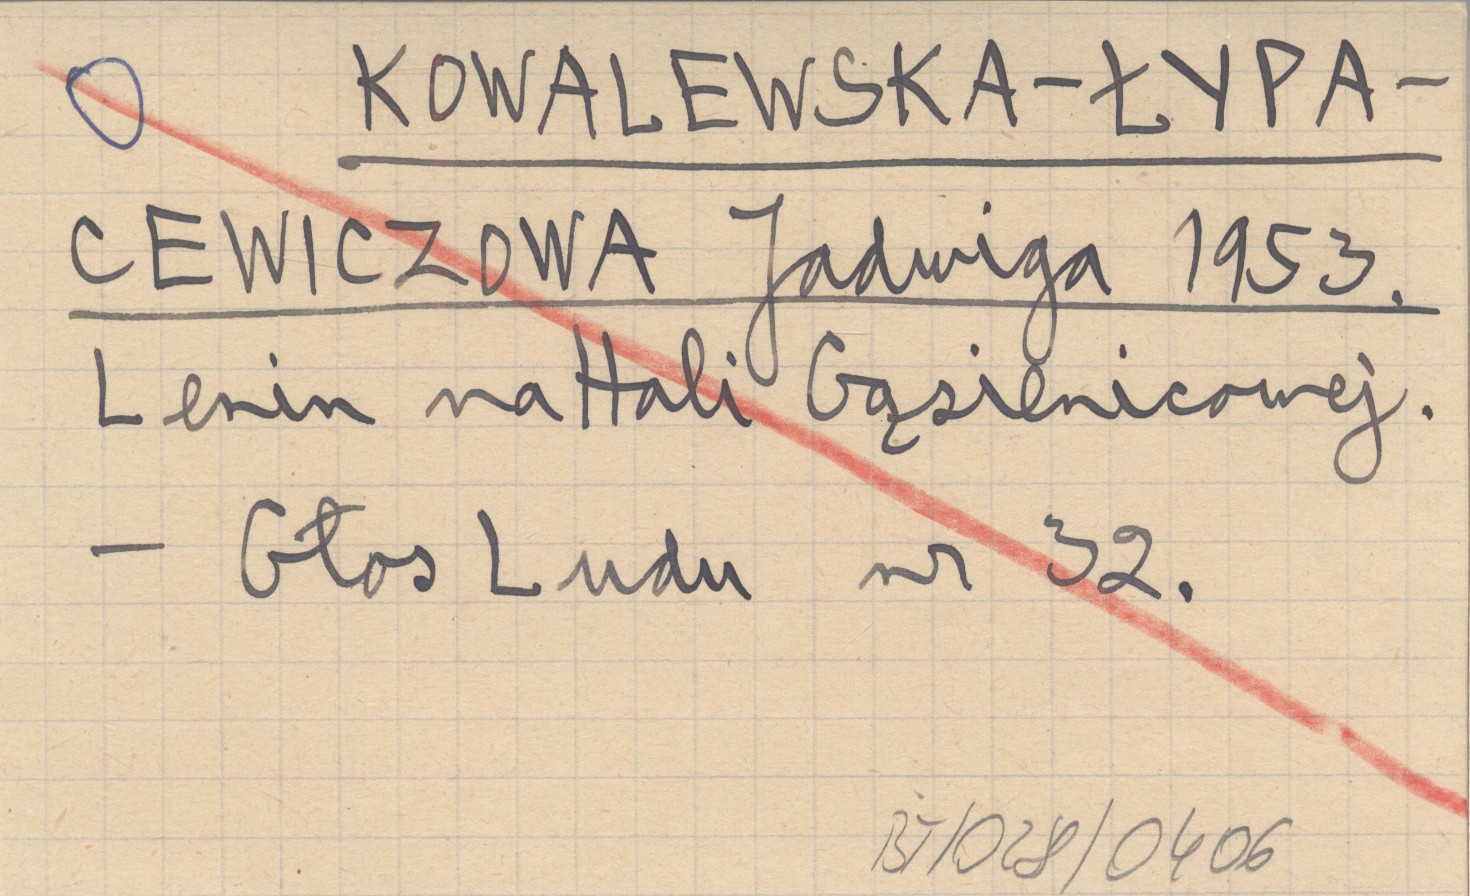 KOWALEWSKA-ŁYPA-
CEWICZOWA Jadwiga 1953.
Lenin na Hali Gąsienicowej.
— Głos Ludu nr 32.
BT/028/0406